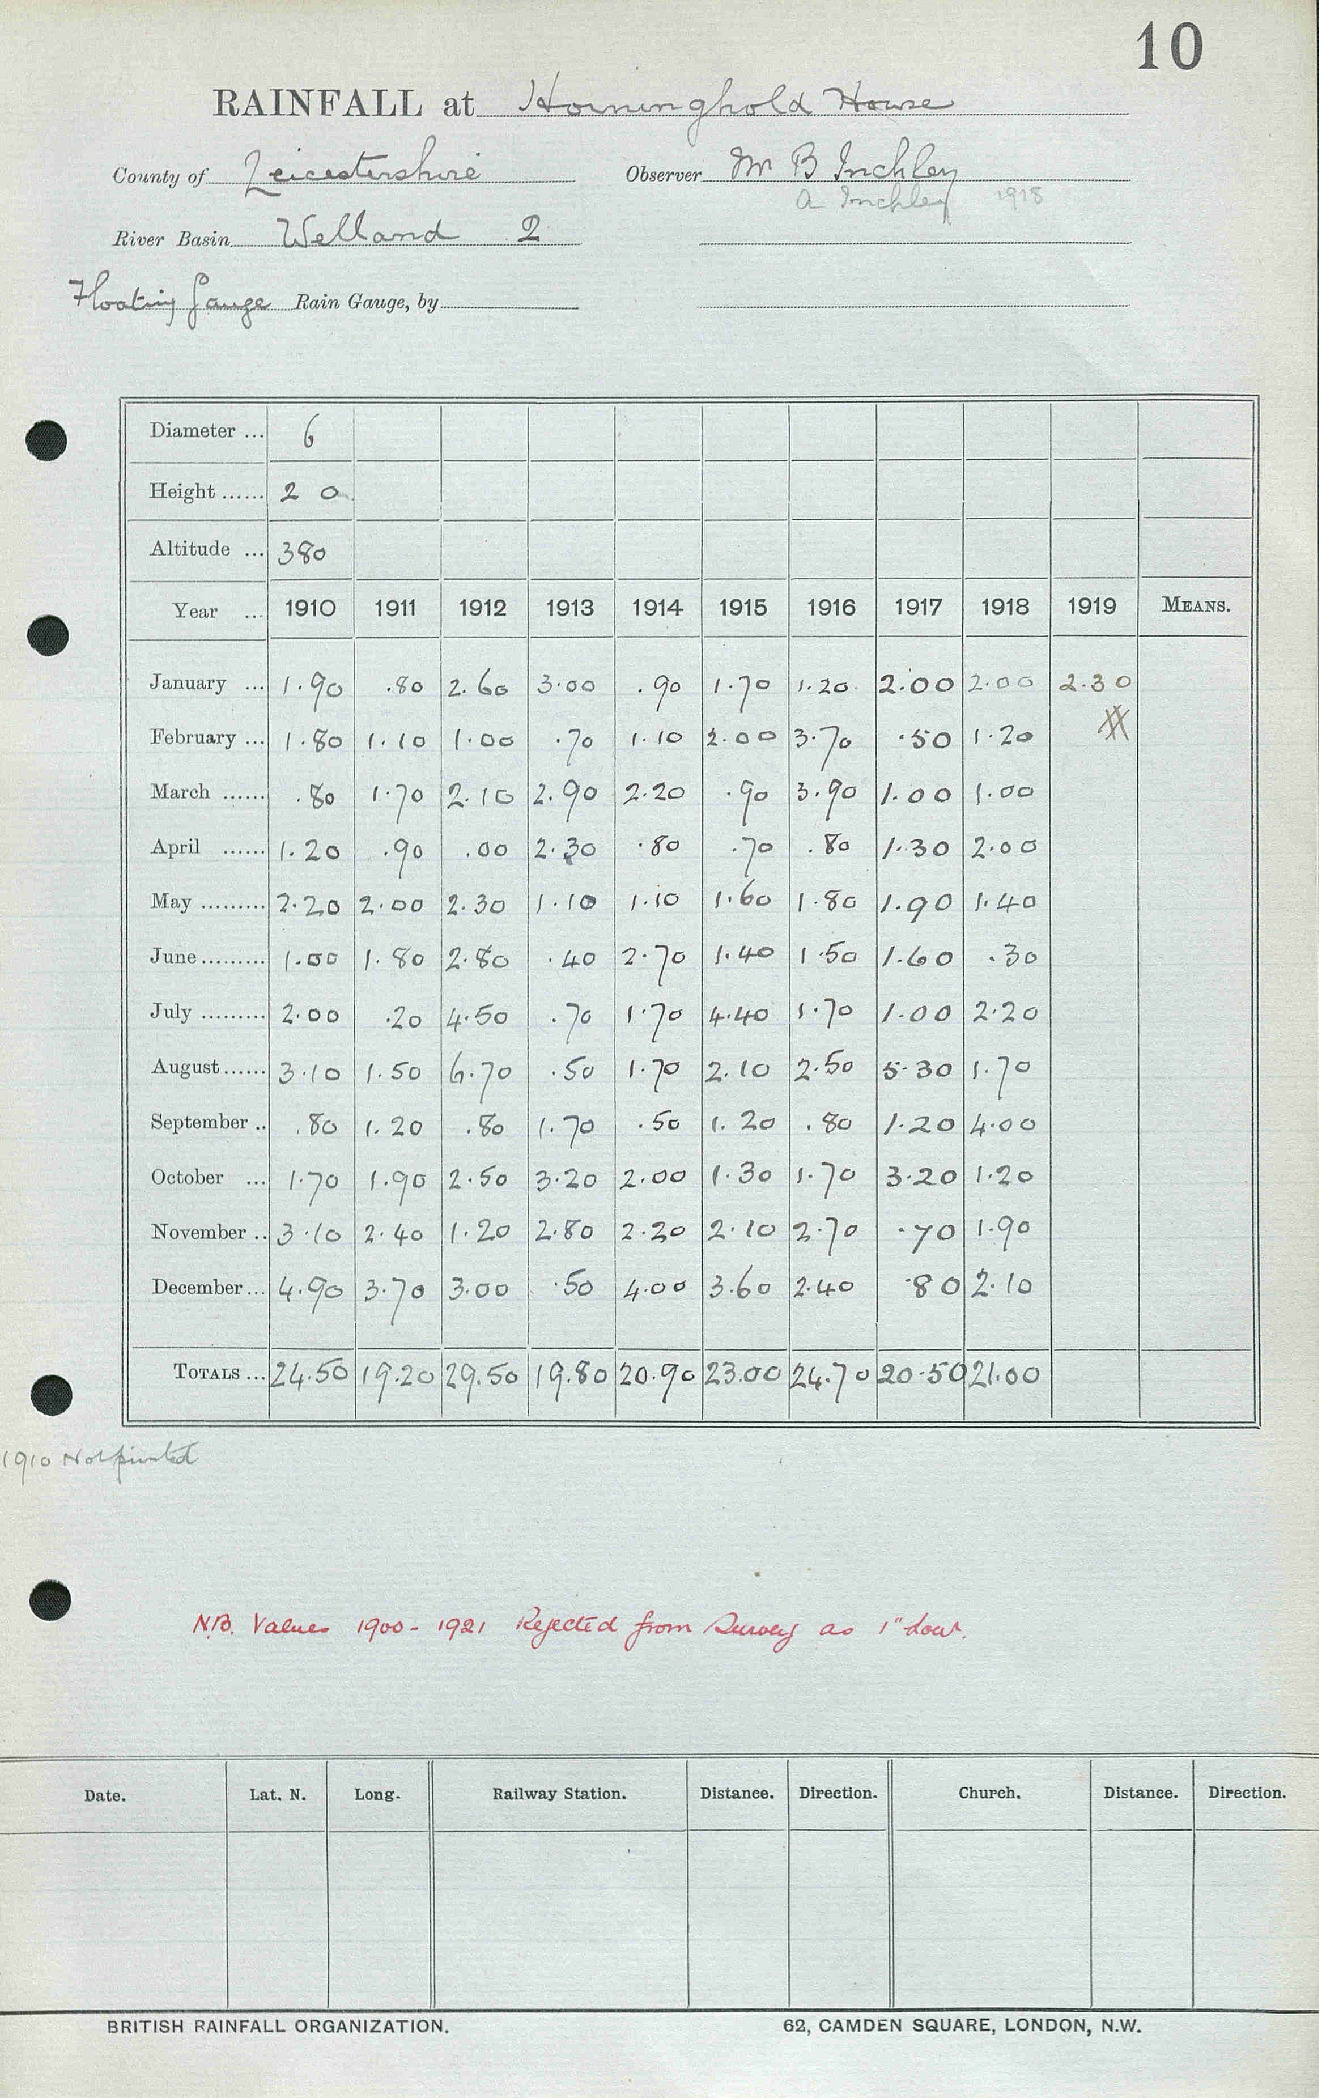 10
RAINFALL at Horninghold House
County of Leicestershire Observer Mr B Inchley
A Inchley 1918
River Basin Welland 2
Floating Gauge Rain Gauge, by
Diameter ... 6
Height ...... 2 0
Altitude ... 380
Year ... 1910 1911 1912 1913 1914 1915 1916 1917 1918 1919 MEANS.
January ... 1.90 .80 2.60 3.00 .90 1.70 1.20 2.00 2.00 2.30
February ... 1.80 1.10 1.00 .70 1.10 2.00 3.70 .50 1.20
March ...... .80 1.70 2.10 2.90 2.20 .90 3.90 1.00 1.00
April ...... 1.20 .90 .00 2.30 .80 .70 .80 1.30 2.00
May ......... 2.20 2.00 2.30 1.10 1.10 1.60 1.80 1.90 1.40
June ......... 1.00 1.80 2.80 .40 2.70 1.40 1.50 1.60 .30
July ......... 2.00 .20 4.50 .70 1.70 4.40 1.70 1.00 2.20
August ...... 3.10 1.50 6.70 .50 1.70 2.10 2.50 5.30 1.70
September .. .80 1.20 .80 1.70 .50 1.20 .80 1.20 4.00
October ... 1.70 1.90 2.50 3.20 2.00 1.30 1.70 3.20 1.20
November .. 3.10 2.40 1.20 2.80 2.20 2.10 2.70 .70 1.90
December ... 4.90 3.70 3.00 .50 4.00 3.60 2.40 .80 2.10
TOTALS ... 24.50 19.20 29.50 19.80 20.90 23.00 24.70 20.50 21.00
1910 Not printed
N.B. Values 1900 - 1921 Rejected from Survey as 1" low.
Date. Lat. N. Long. Railway Station. Distance. Direction. Church. Distance. Direction.
BRITISH RAINFALL ORGANIZATION. 62, CAMDEN SQUARE, LONDON, N.W.